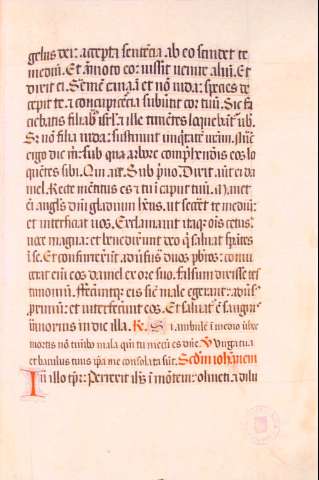 gelus dei: accepta sentētia ab eo scindet te
mediū. Et āmoto eo: iussit venire aliū. Et
dixit ei. Semē canaā et nō iuda: species de
cepit te. a concupiscētia subūtit cor tuū. Sic fa
ciebatis filiab9 isrl: a ille timētes loquebātr uob.
S; nō filia iuda: sustinuit iniqtatē vrām. Nūc
ergo dic m: sub qua arbore compħendis eos lo
quētes sibi. Qui ait. Sub pino. Dixit autē ei da
niel. Recte mētitus es et tu ī caput tuū. Manet
ei angls dnī gladium hēns, ut secet te mediū:
et interficiat vos. Exclamauit itaqȝ ōis cetus
uoce magna: et benedixerūt deo q saluat spātes
ī se. Et consurrexerūt aduersus duos pbros: conui
cerat eni eos daniel ex ore suo. falsum dixisse tes
timoniū. feceruntqȝ eis sic male egerant: aduers
primū: et interfecerūt eos. Et saluat9 ē sanguis
innoxius in die illa. R. Si ambulē ī medio ūbre
mortis nō timebo mala qm̄ tu mecū es dn̄e. V. Virga tua
et baculus tuus ipa me consolata sūt. Scdm iohānem
In illo tpr: Perrexit ihs ī mōtem: oliueti. a dilu